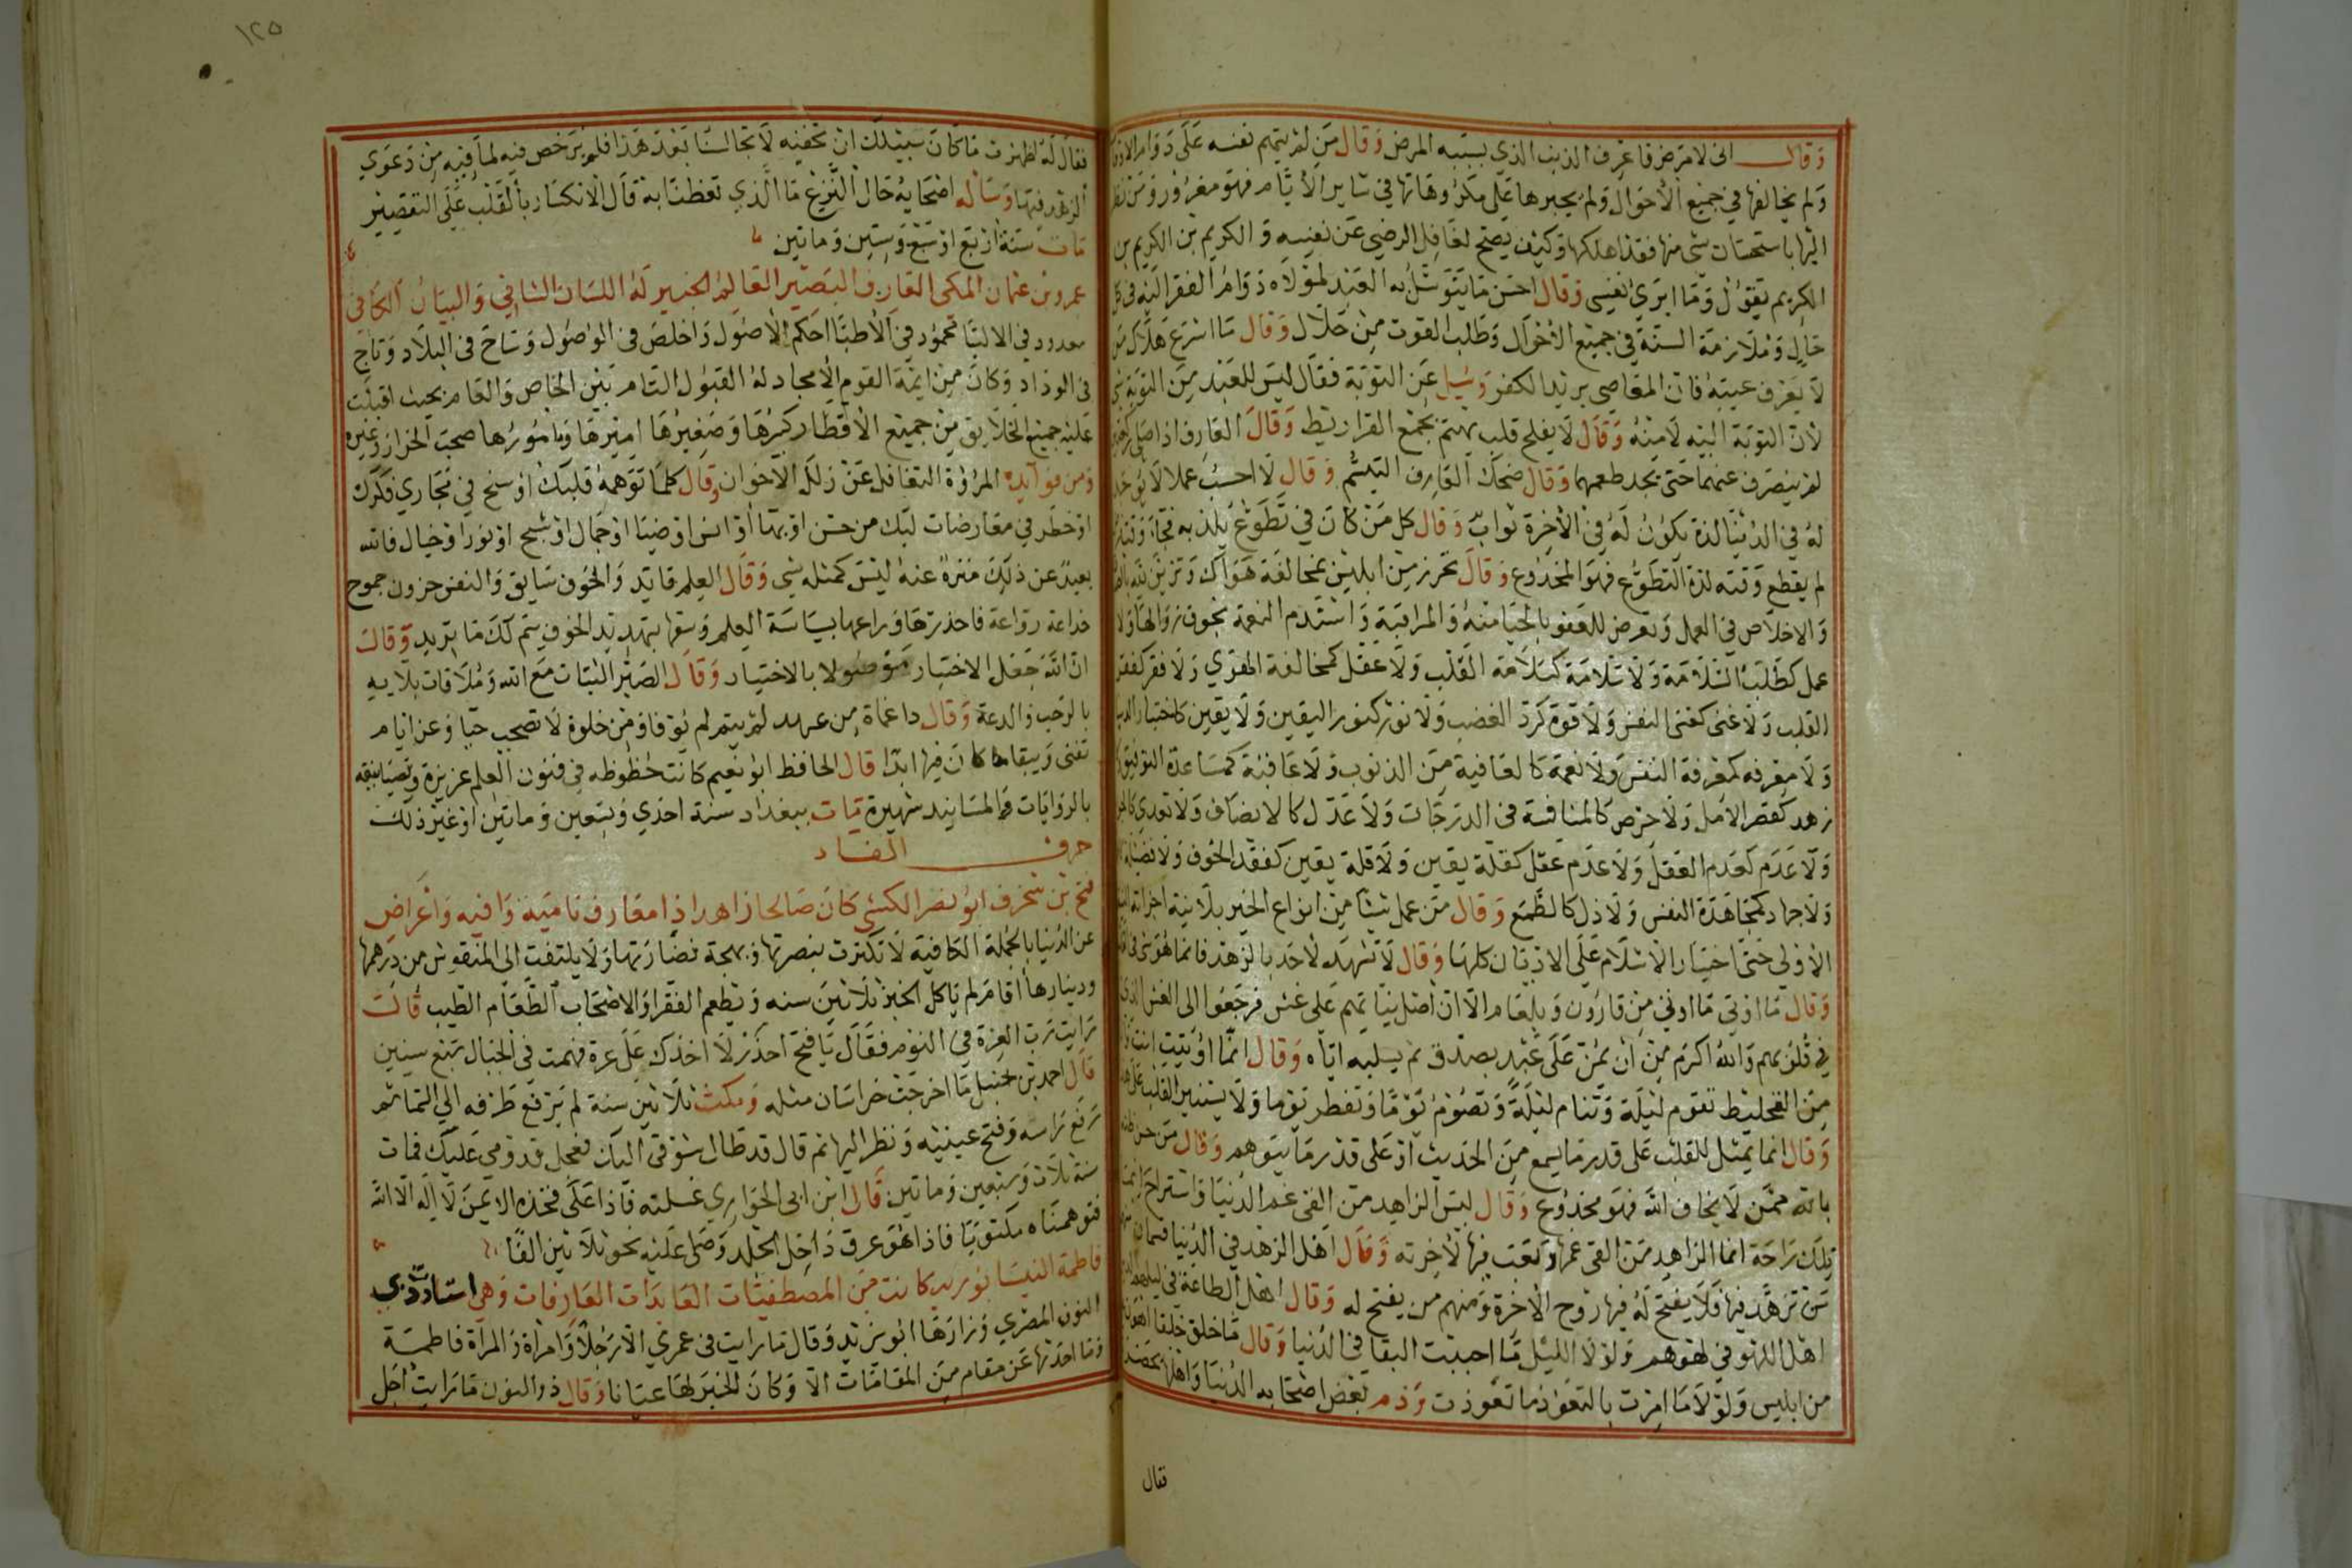 وقال اني لامرض فاعرف الذنب الذي بسببه المرض وقال من لم يتهم نفسه على دوام
ولم يخالفها في جميع الاحوال ولم يجبرها على مكروهاتها في ساير الايام فهو مغرور ومن نظر
اليها باستحسان شي منها فقد اهلكها وكيف يصح لعاقل الرضي عن نفسه و الكريم بن الكريم بن
الكريم يقول وما ابري نفسي وقال احسن ما يتوسل به العبد لمولاه دوام الفقر اليه في كل
حال وملازمة السنة في جميع الاحوال وطلب القوت من حلال وقال ما اسرع هلاك من
لا يعرف عيبه فان المعاصي بريد الكفر وسيل عن التوبة فقال ليس للعبد من التوبة شي
لان التوبة اليه لا منه وقال لا يفلح قلب يهتم بجمع القراريط وقال العارف اذا صلى
لم ينصرف عنهما حتى يجد طعمهما وقال ضحك العارف التبسم وقال لا احسب عملا لا يوجد
له في الدنيا لذة يكون له في الاخرة ثواب وقال كل من كان في تطوع يلذ به فجاء وقت
لم يقطع وقته لذة التطوع فهو المخدوع وقال تحرز من ابليس بمخالفة هواك وتزين لله
والاخلاص في العمل وتعرض للعفو بالحيا منه والمراقبة واستدم النعمة بخوف زوالها ولا
عمل كطلب السلامة ولا سلامة كسلامة القلب ولا عقل كمخالفة الهوي ولا فقر كفقر
القلب ولا غنى كغنى النفس ولا قوة كرد الغضب ولا نور كنور اليقين ولا يقين كاحتقار الدنيا
ولا معرفه كمعرفة النفس ولا نعمة كالعافية من الذنوب ولا عافية كمساعدة التوفيق ولا
زهد كقصر الامل ولا حرص كالمنافسة في الدرجات ولا عدل كالانصاف ولا تعدي كالجور
ولا عدم كعدم العقل ولا عدم عقل كقلة يقين ولا قلة يقين كفقد الخوف ولا مصيبة
ولا جهاد كمجاهدة النفس ولا ذل كالطمع وقال من عمل شيئا من انواع الخير بلا نية اجزاته النية
الاولي حتى اختيار الاسلام على الاديان كلها وقال لا تشهد لاحد بالزهد فانما هو شي في القلب
وقال ما اوتي ما اوتي من قارون وبلعام الا ان اصل نياتهم على غش فرجعوا الى الغش الذي
في قلوبهم والله اكرم من ان يمن على عبد بصدق ثم يسلبه اياه وقال انما اوتيت انت
من التخليط تقوم ليلة وتنام ليلة وتصوم يوما وتفطر يوما ولا يستنير القلب على هذا
وقال انما يمثل للقلب على قدر ما يسمع من الحديث او على قدر ما يتوهم وقال من حسن ظنه
بالله ممن لا يخاف الله فهو مخدوع وقال ليس الزاهد من القى غم الدنيا واستراح انما
تلك راحة انما الزاهد من القى غمها وتعب فيها لاخرته وقال اهل الزهد في الدنيا قسمان
من تزهد فيها فلا يفتح له فيها روح الاخرة ومنهم من يفتح له وقال اهل الطاعة في ليلهم الذ من
اهل اللهو في لهوهم ولولا الليل ما احببت البقا في الدنيا وقال ما خلق خلقا اهون
من ابليس ولولا ما امرت بالتعوذ ما تعوذت وذم بعض اصحابه الدنيا واهلها بحضرته
فقال
١٢٥
فقال له اظهرت ما كان سبيلك ان تخفيه لا تجالسنا بعد هذا فلم يرخص فيه لما فيه من دعوي
الزهد فيها وساله اصحابه حال النزع ما الذي تعظنا به قال الانكسار بالقلب على التقصير
مات سنة اربع او سبع وستين وماتين
عمرو بن عثمان المكي العارف البصير العالم الخبير له اللسان الشافي والبيان الكافي
معدود في الالبا محمود في الاطبا احكم الاصول واخلص في الوصول وساح في البلاد وناح
في الوداد وكان من ايمة القوم الامجاد له القبول التام بين الخاص والعام بحيث اقبلت
عليه جميع الخلايق من جميع الاقطار كبيرها وصغيرها اميرها ومامورها صحب الخراز وغيره
ومن فوايده المروة التغافل عن زلل الاخوان وقال كلما توهمه قلبك او سنح في مجاري فكرك
او خطر في معارضات لبك من حسن او بها او انس او ضيا او جمال او شبح او نور او خيال فالله
بعيد عن ذلك منزه عنه ليس كمثله شي وقال العلم قايد والخوف سايق والنفس حزون جموح
خداعة رواغة فاحذرها وراعها بسياسة العلم وسقها بتهديد الخوف يتم لك ما تريد وقال
ان الله جعل الاختيار موصولا بالاختيار وقال الصبر الثبات مع الله وملاقات بلايه
بالرحب والدعة وقال داعماة من عهد لم يتم لم يوفا ومن خلوة لا تصحب حيا وعن ايام
تفنى ويبقا ما كان فيها ابدا قال الحافظ ابو نعيم كانت حظوظه في فنون العلم عزيزة وتصانيفه
بالروايات والمسانيد شهيرة مات ببغداد سنة احدي وتسعين وماتين او غير ذلك
حرف الفاء
فتح بن شخرف ابو نصر الكشي كان صالحا زاهدا ذا معارف نامية وافيه واعراض
عن الدنيا بالجملة الكافية لا تكترث بنصرتها وبهجة نضارتها ولا يلتفت الى المنقوش من درهمها
ودينارها اقام لم ياكل الخبز ثلاثين سنه ويطعم الفقرا والاصحاب الطعام الطيب قال
رايت رب العزة في النوم فقال يا فتح احذر لا اخذك على غرة فهمت في الجبال سبع سنين
قال احمد بن حنبل ما اخرجت خراسان مثله ومكث ثلاثين سنة لم يرفع طرفه الي السما ثم
رفع راسه وفتح عينيه ونظر اليها ثم قال قد طال شوقي اليك فعجل قدومي عليك فمات
سنة ثلاث وسبعين وماتين قال ابن ابي الحواري غسلته فاذا على فخذه الايمن لا اله الا الله
فتوهمناه مكتوبا فاذا هو عرق داخل الجلد وصلى عليه نحو ثلاثين الفا
فاطمة النيسابوريه كانت من المصطفيات العابدات العارفات وهي استاذة ذي
النون المصري وزارها ابو يزيد وقال ما رايت في عمري الا رجلا وامراة والمراة فاطمة
وما احدثها عن مقام من المقامات الا وكان الخبر لها عيانا وقال ذو النون ما رايت اجل